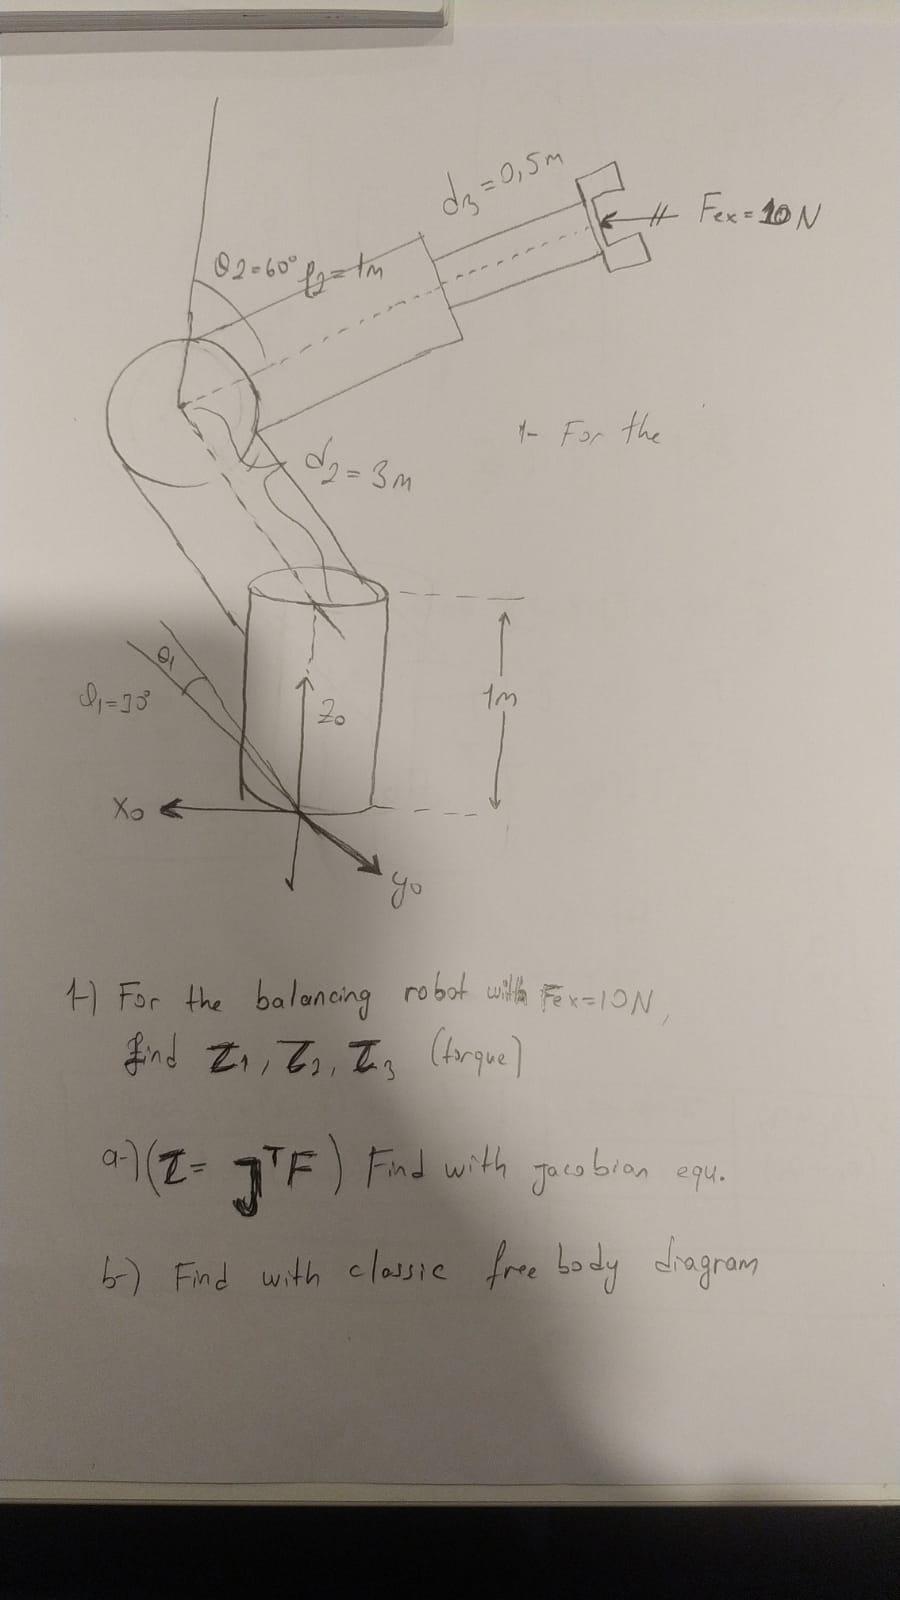 d3=0,5m
Fex=10N
θ2=60°
l2=1m
d2=3m
1- For the
θ1
1m
Z0
X0
y0
1-) For the balancing robot with Fex=10N,
find τ1, τ2, τ3 (torque)
a-) (τ= JᵀF) Find with jacobian equ.
b-) Find with classic free body diagram